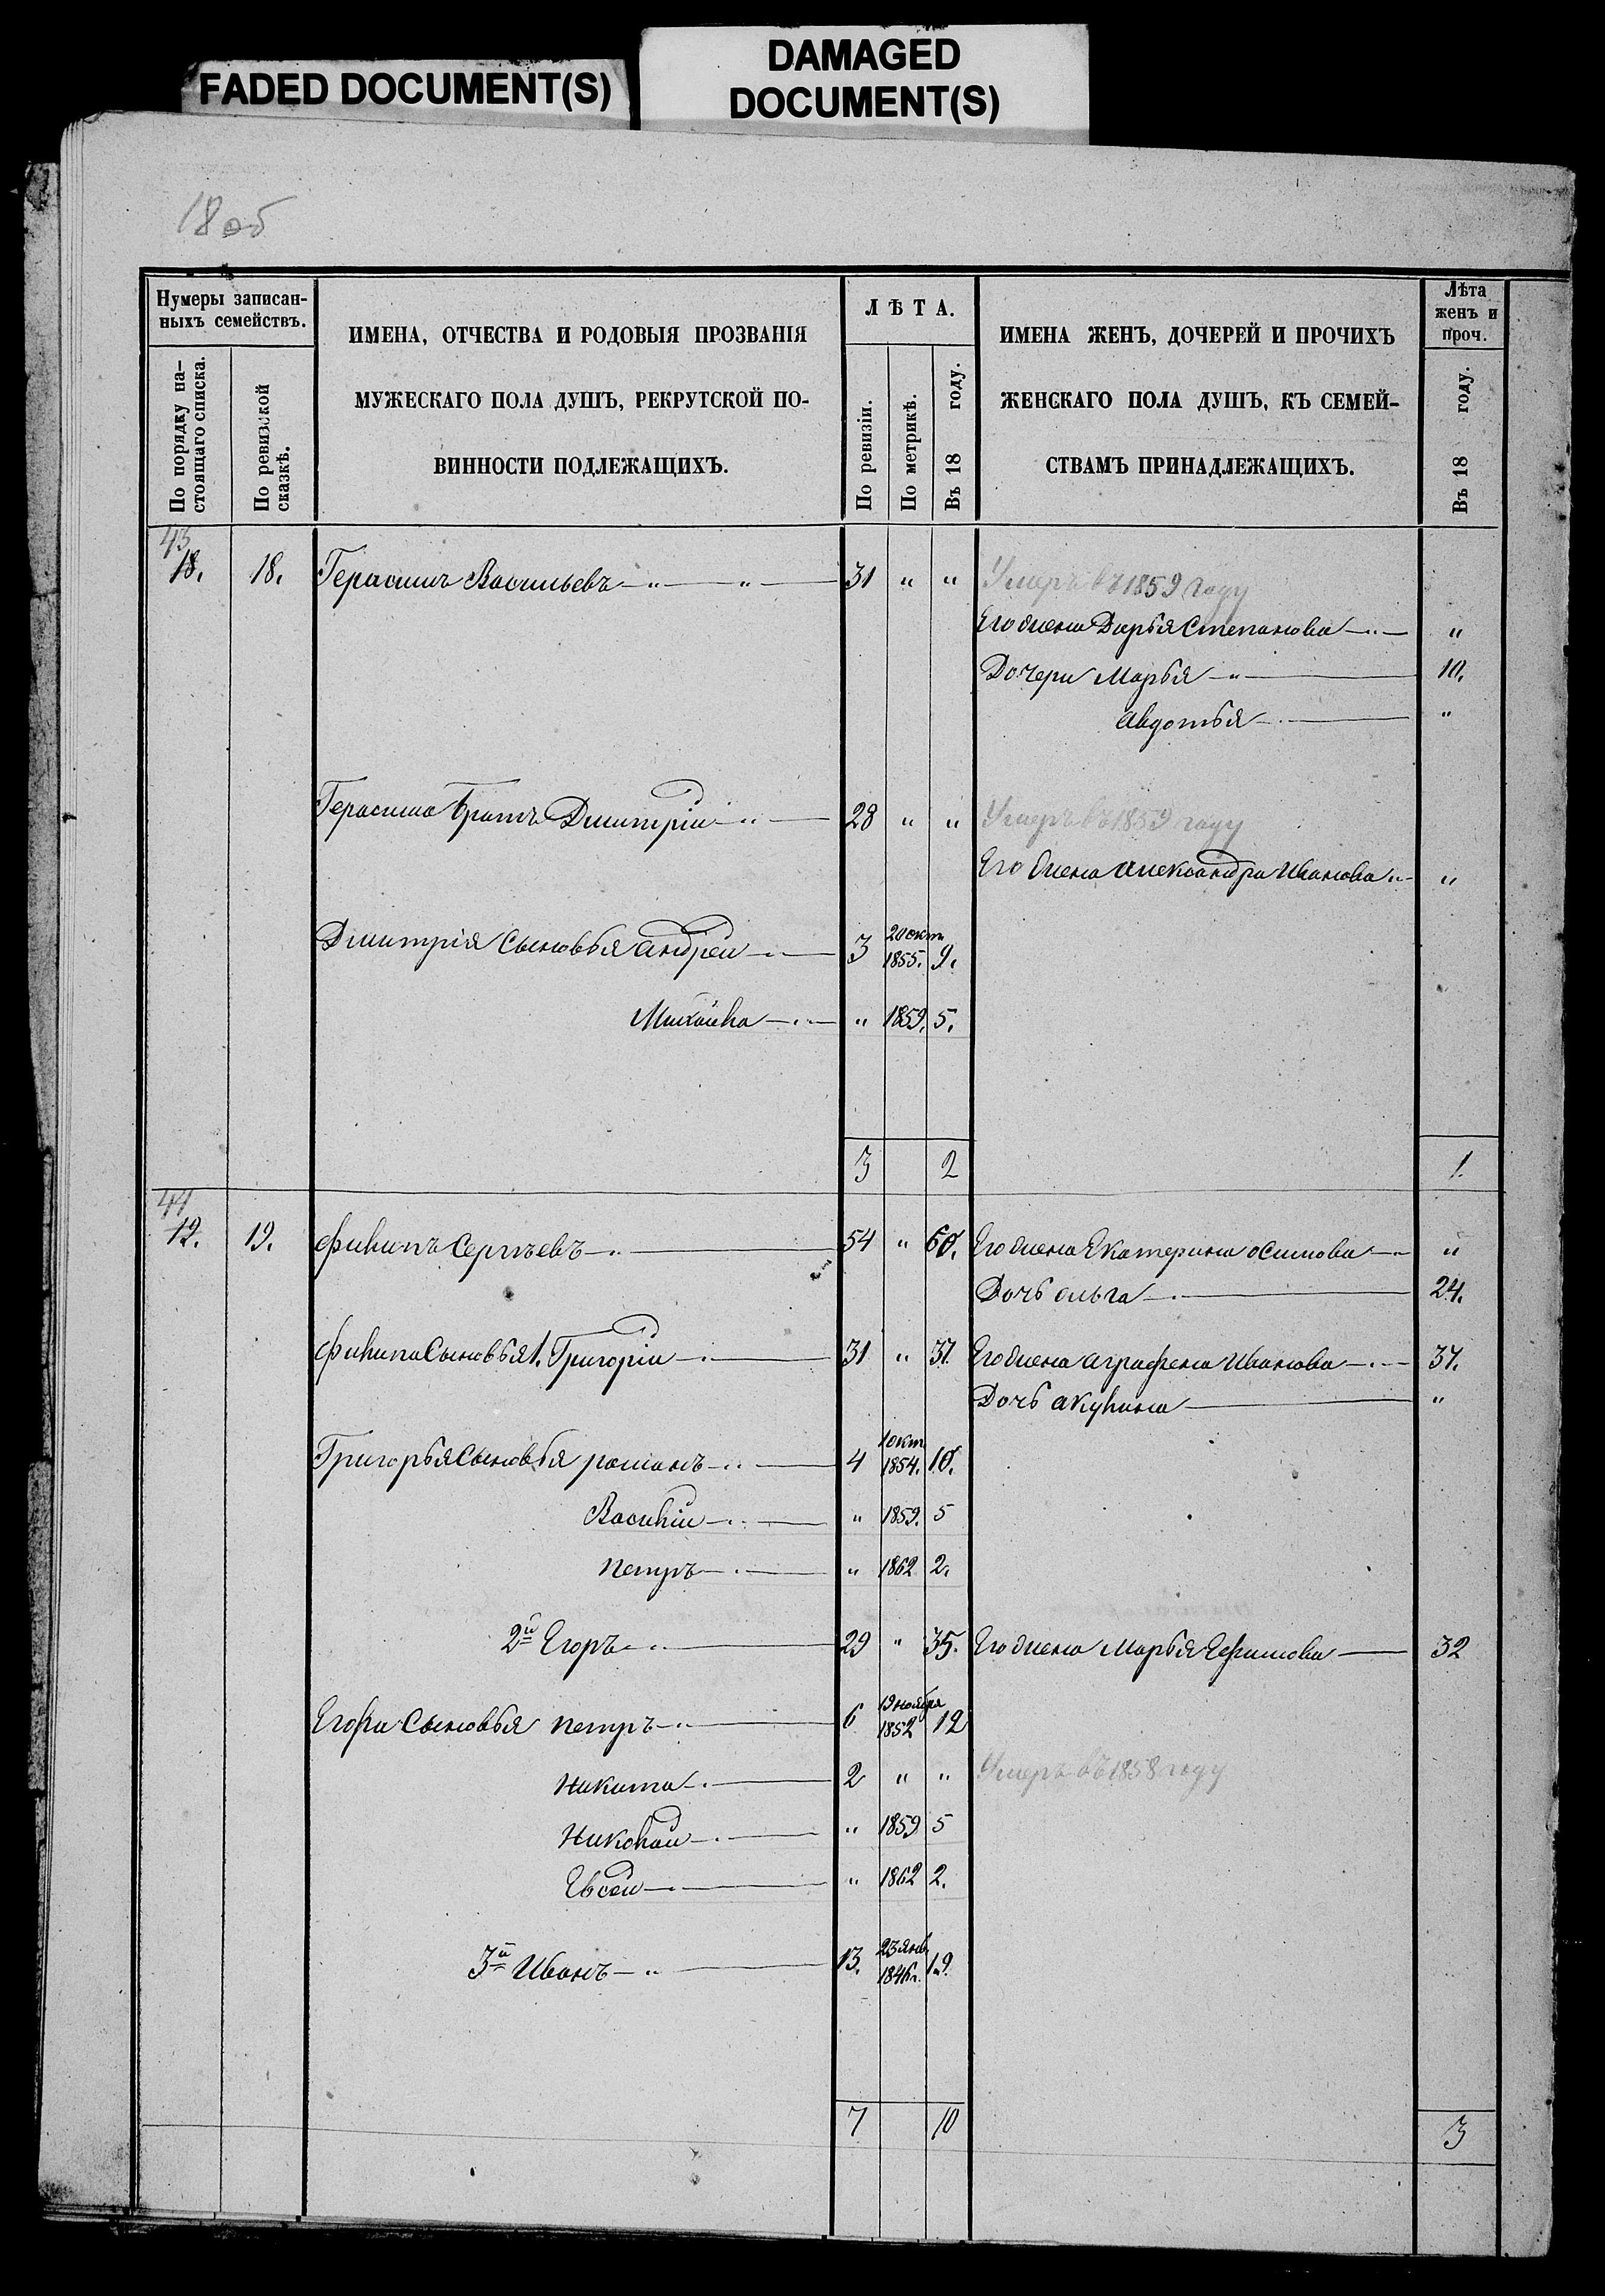 FADED DOCUMENT(S)
DAMAGED
DOCUMENT(S)
18 об
Нумеры записан-
ныхъ семействъ.
По порядку на-
стоящаго списка.
По ревизской
сказкѣ.
ИМЕНА, ОТЧЕСТВА И РОДОВЫЯ ПРОЗВАНІЯ
МУЖЕСКАГО ПОЛА ДУШЪ, РЕКРУТСКОЙ ПО-
ВИННОСТИ ПОДЛЕЖАЩИХЪ.
ЛѢТА.
По ревизіи.
По метрикѣ.
Въ 18 году.
ИМЕНА ЖЕНЪ, ДОЧЕРЕЙ И ПРОЧИХЪ
ЖЕНСКАГО ПОЛА ДУШЪ, КЪ СЕМЕЙ-
СТВАМЪ ПРИНАДЛЕЖАЩИХЪ.
Лѣта
женъ и
проч.
Въ 18 году.
43
18. 18. Герасимъ Васильевъ — „ — „ — 31 „ „ Умеръ въ 1859 году
Его жена Дарья Степанова — „
Дочери Марья — „ — 10.
Авдотья — „
Герасима братъ Дмитрій — 28 „ „ Умеръ въ 1859 году
Его жена Александра Иванова „ — „
Дмитрія сыновья Андрей — 3 20 окт. 1855. 9.
Михайла — „ 1859. 5.
3 2 1.
44
19. 19. Филипъ Сергѣевъ — 54 „ 60. Его жена Екатерина Осипова — „
Дочь Ольга — 24.
Филипа сыновья 1. Григорій — 31 „ 37. Его жена Аграфена Иванова — 37.
Дочь Акулина — „
Григорья сыновья Романъ — 4 1 окт. 1854. 10.
Василій — „ 1859. 5
Петръ — „ 1862 2.
2й Егоръ — 29 „ 35. Его жена Марья Ефимова — 32
Егора сыновья Петръ — 6 19 ноября 1852 12
Никита — 2 „ „ Умеръ въ 1858 году
Николай — „ 1859 5
Евсей — „ 1862 2.
3й Иванъ — 13. 23 янв. 1846 г. 19.
7 10 3